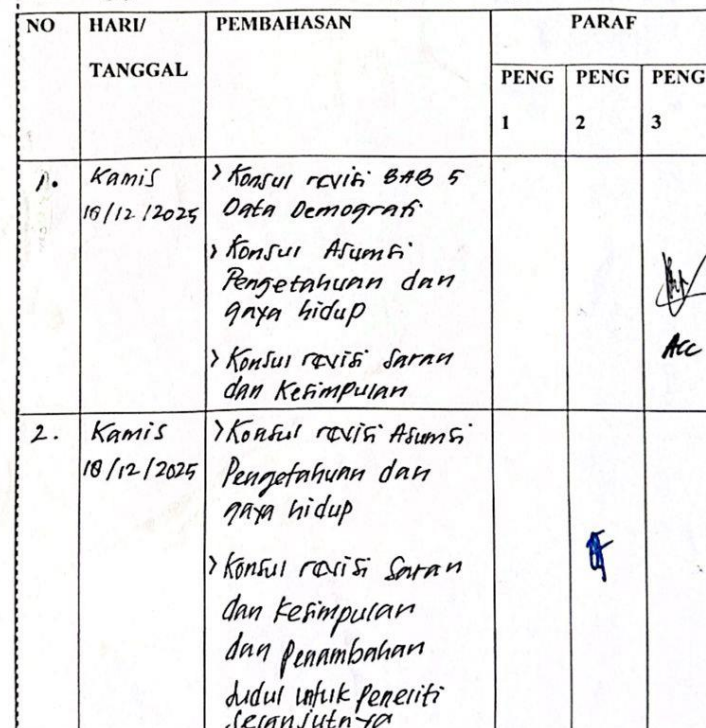 NO HARI/ PEMBAHASAN PARAF
TANGGAL
PENG PENG PENG
1 2 3
1. Kamis > Konsul revisi BAB 5
18/12/2025 Data Demografi
> Konsul Asumsi
Pengetahuan dan
gaya hidup
> Konsul revisi Saran
dan Kesimpulan
Acc
2. Kamis > Konsul revisi Asumsi
18/12/2025 Pengetahuan dan
gaya hidup
> Konsul revisi Saran
dan Kesimpulan
dan Penambahan
Judul untuk Peneliti
Selanjutnya